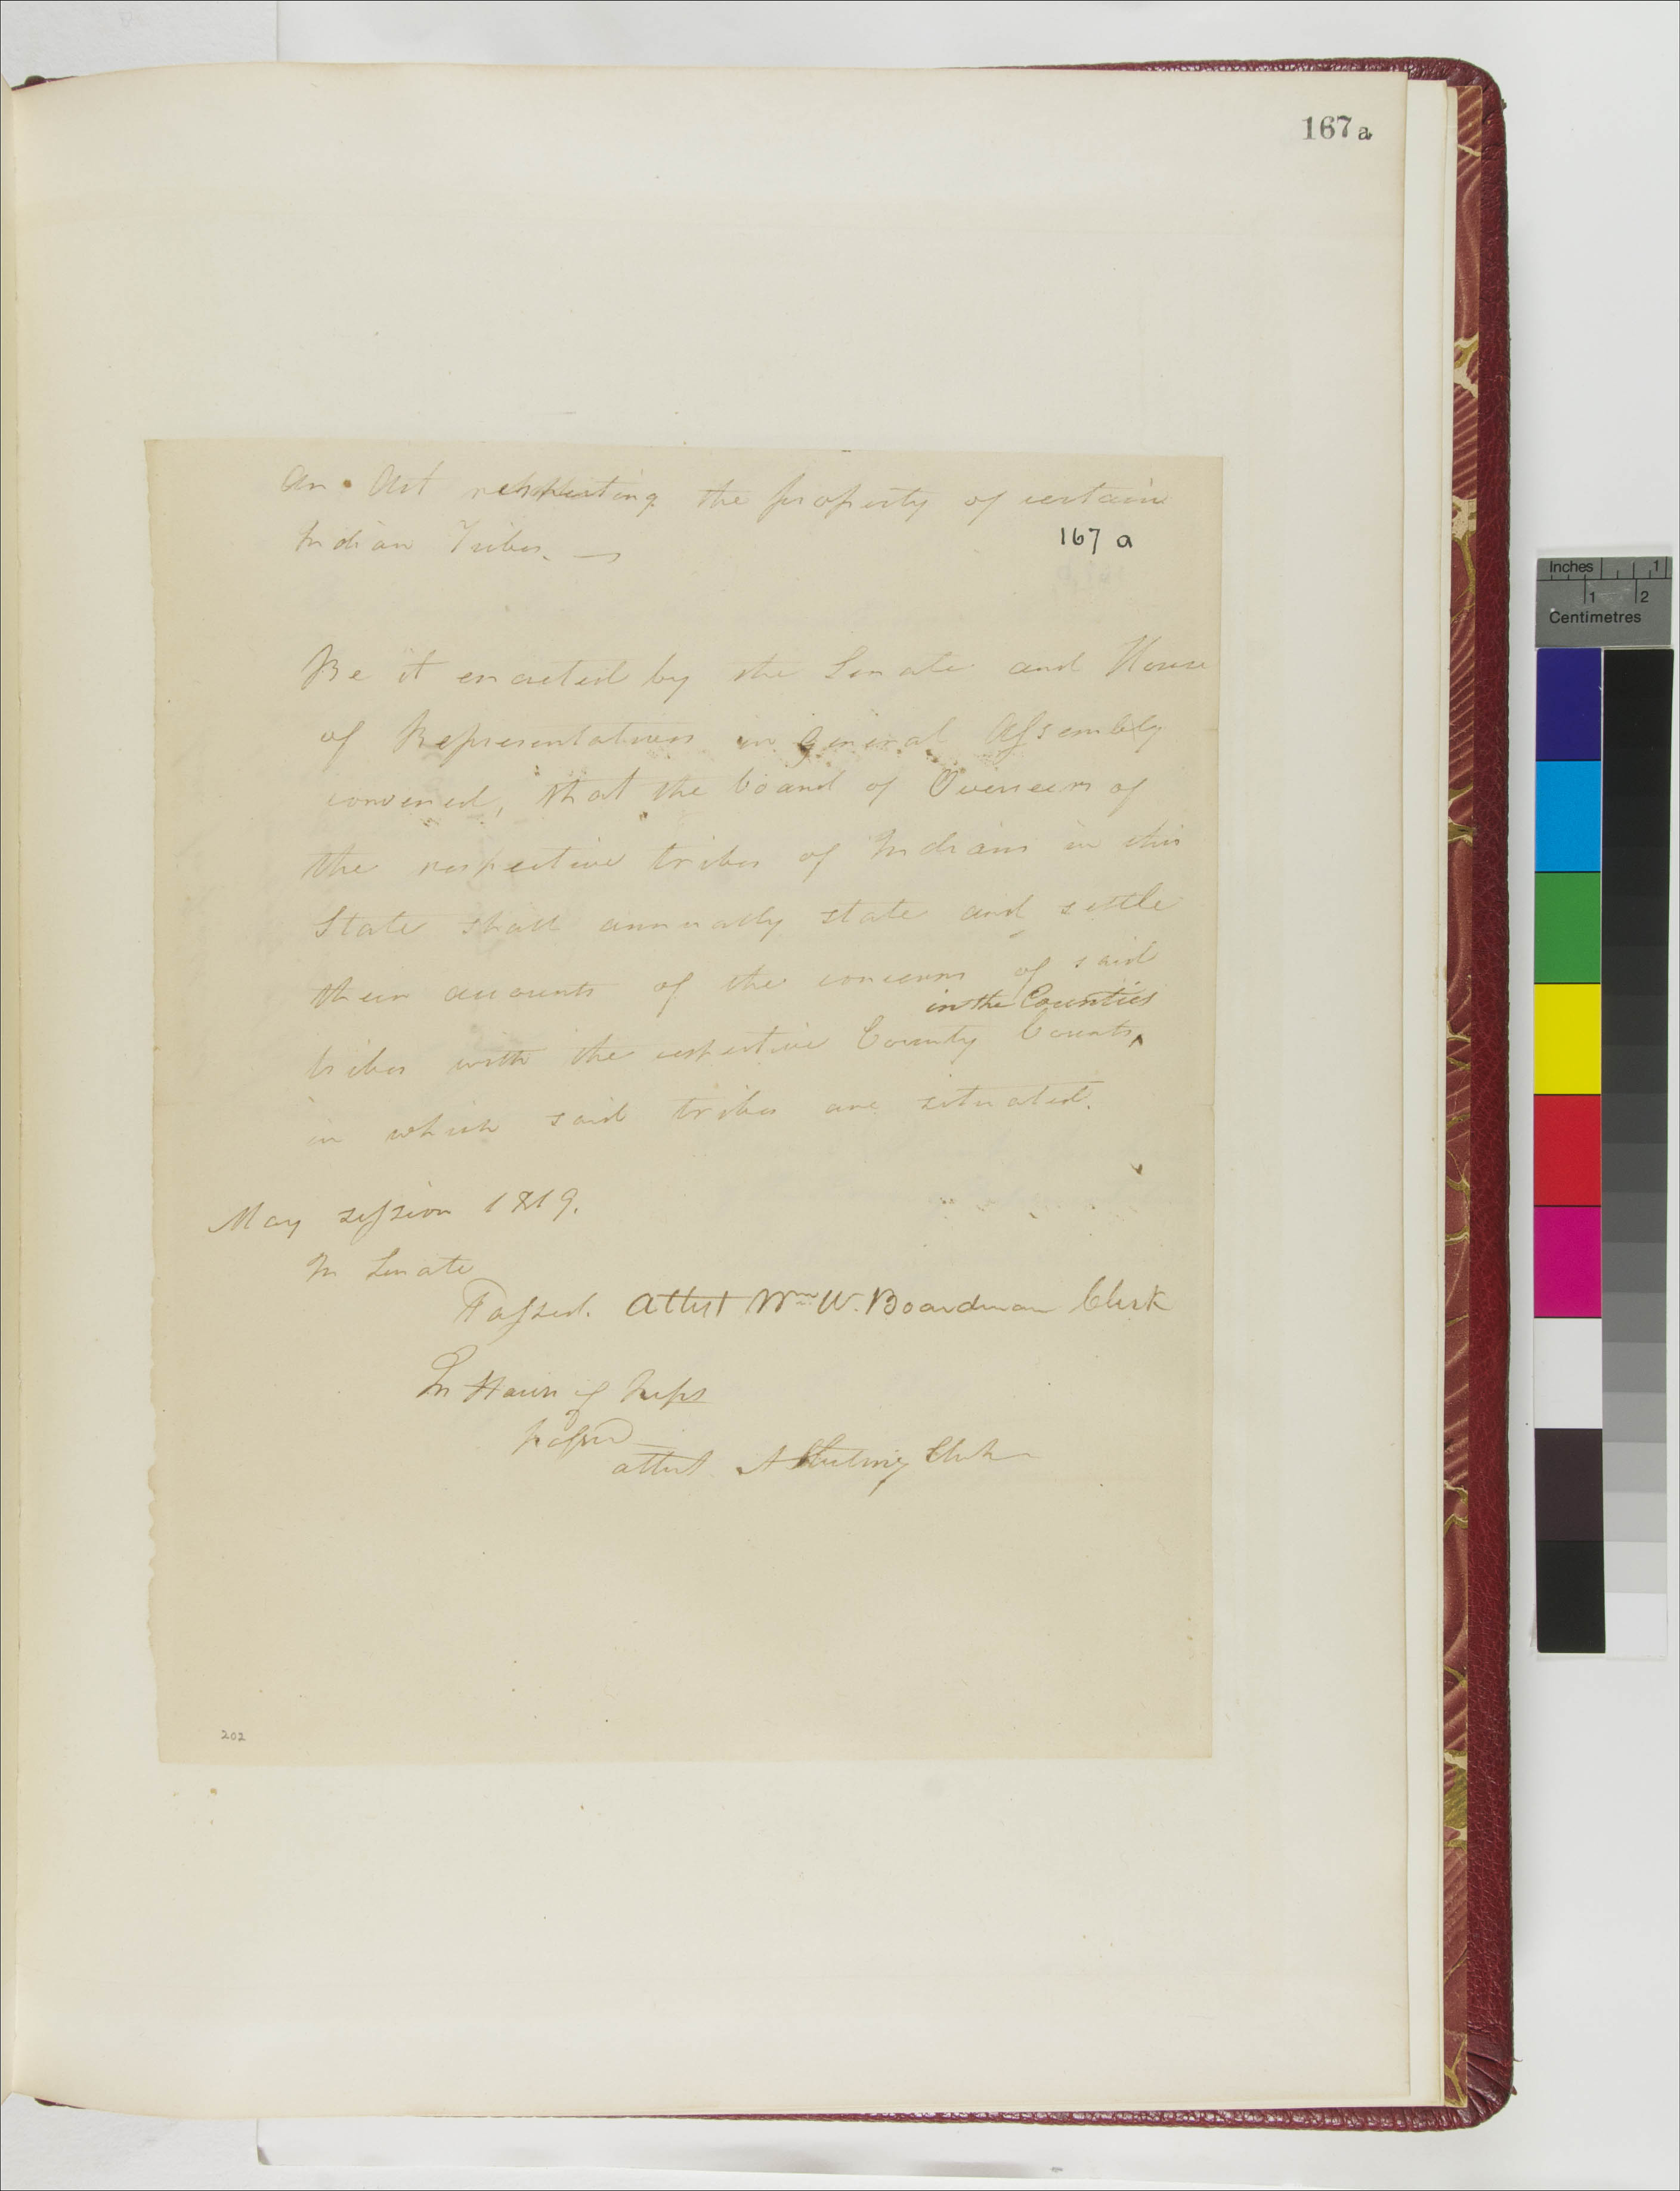 167 a
An Act respecting the property of certain
Indian Tribes. —
167 a
Be it enacted by the Senate and House
of Representatives in General Assembly
convened, that the board of Overseers of
the respective tribes of Indians in this
State shall annually state and settle
their accounts of the concerns of said
in the Counties
tribes with the respective County Courts‸
in which said tribes are situated.
May session 1819.
In Senate
Passed. Attest Wm W. Boardman Clerk
In House of Reps
passed
attest A Clerk
202
Inches 1
1 2
Centimetres